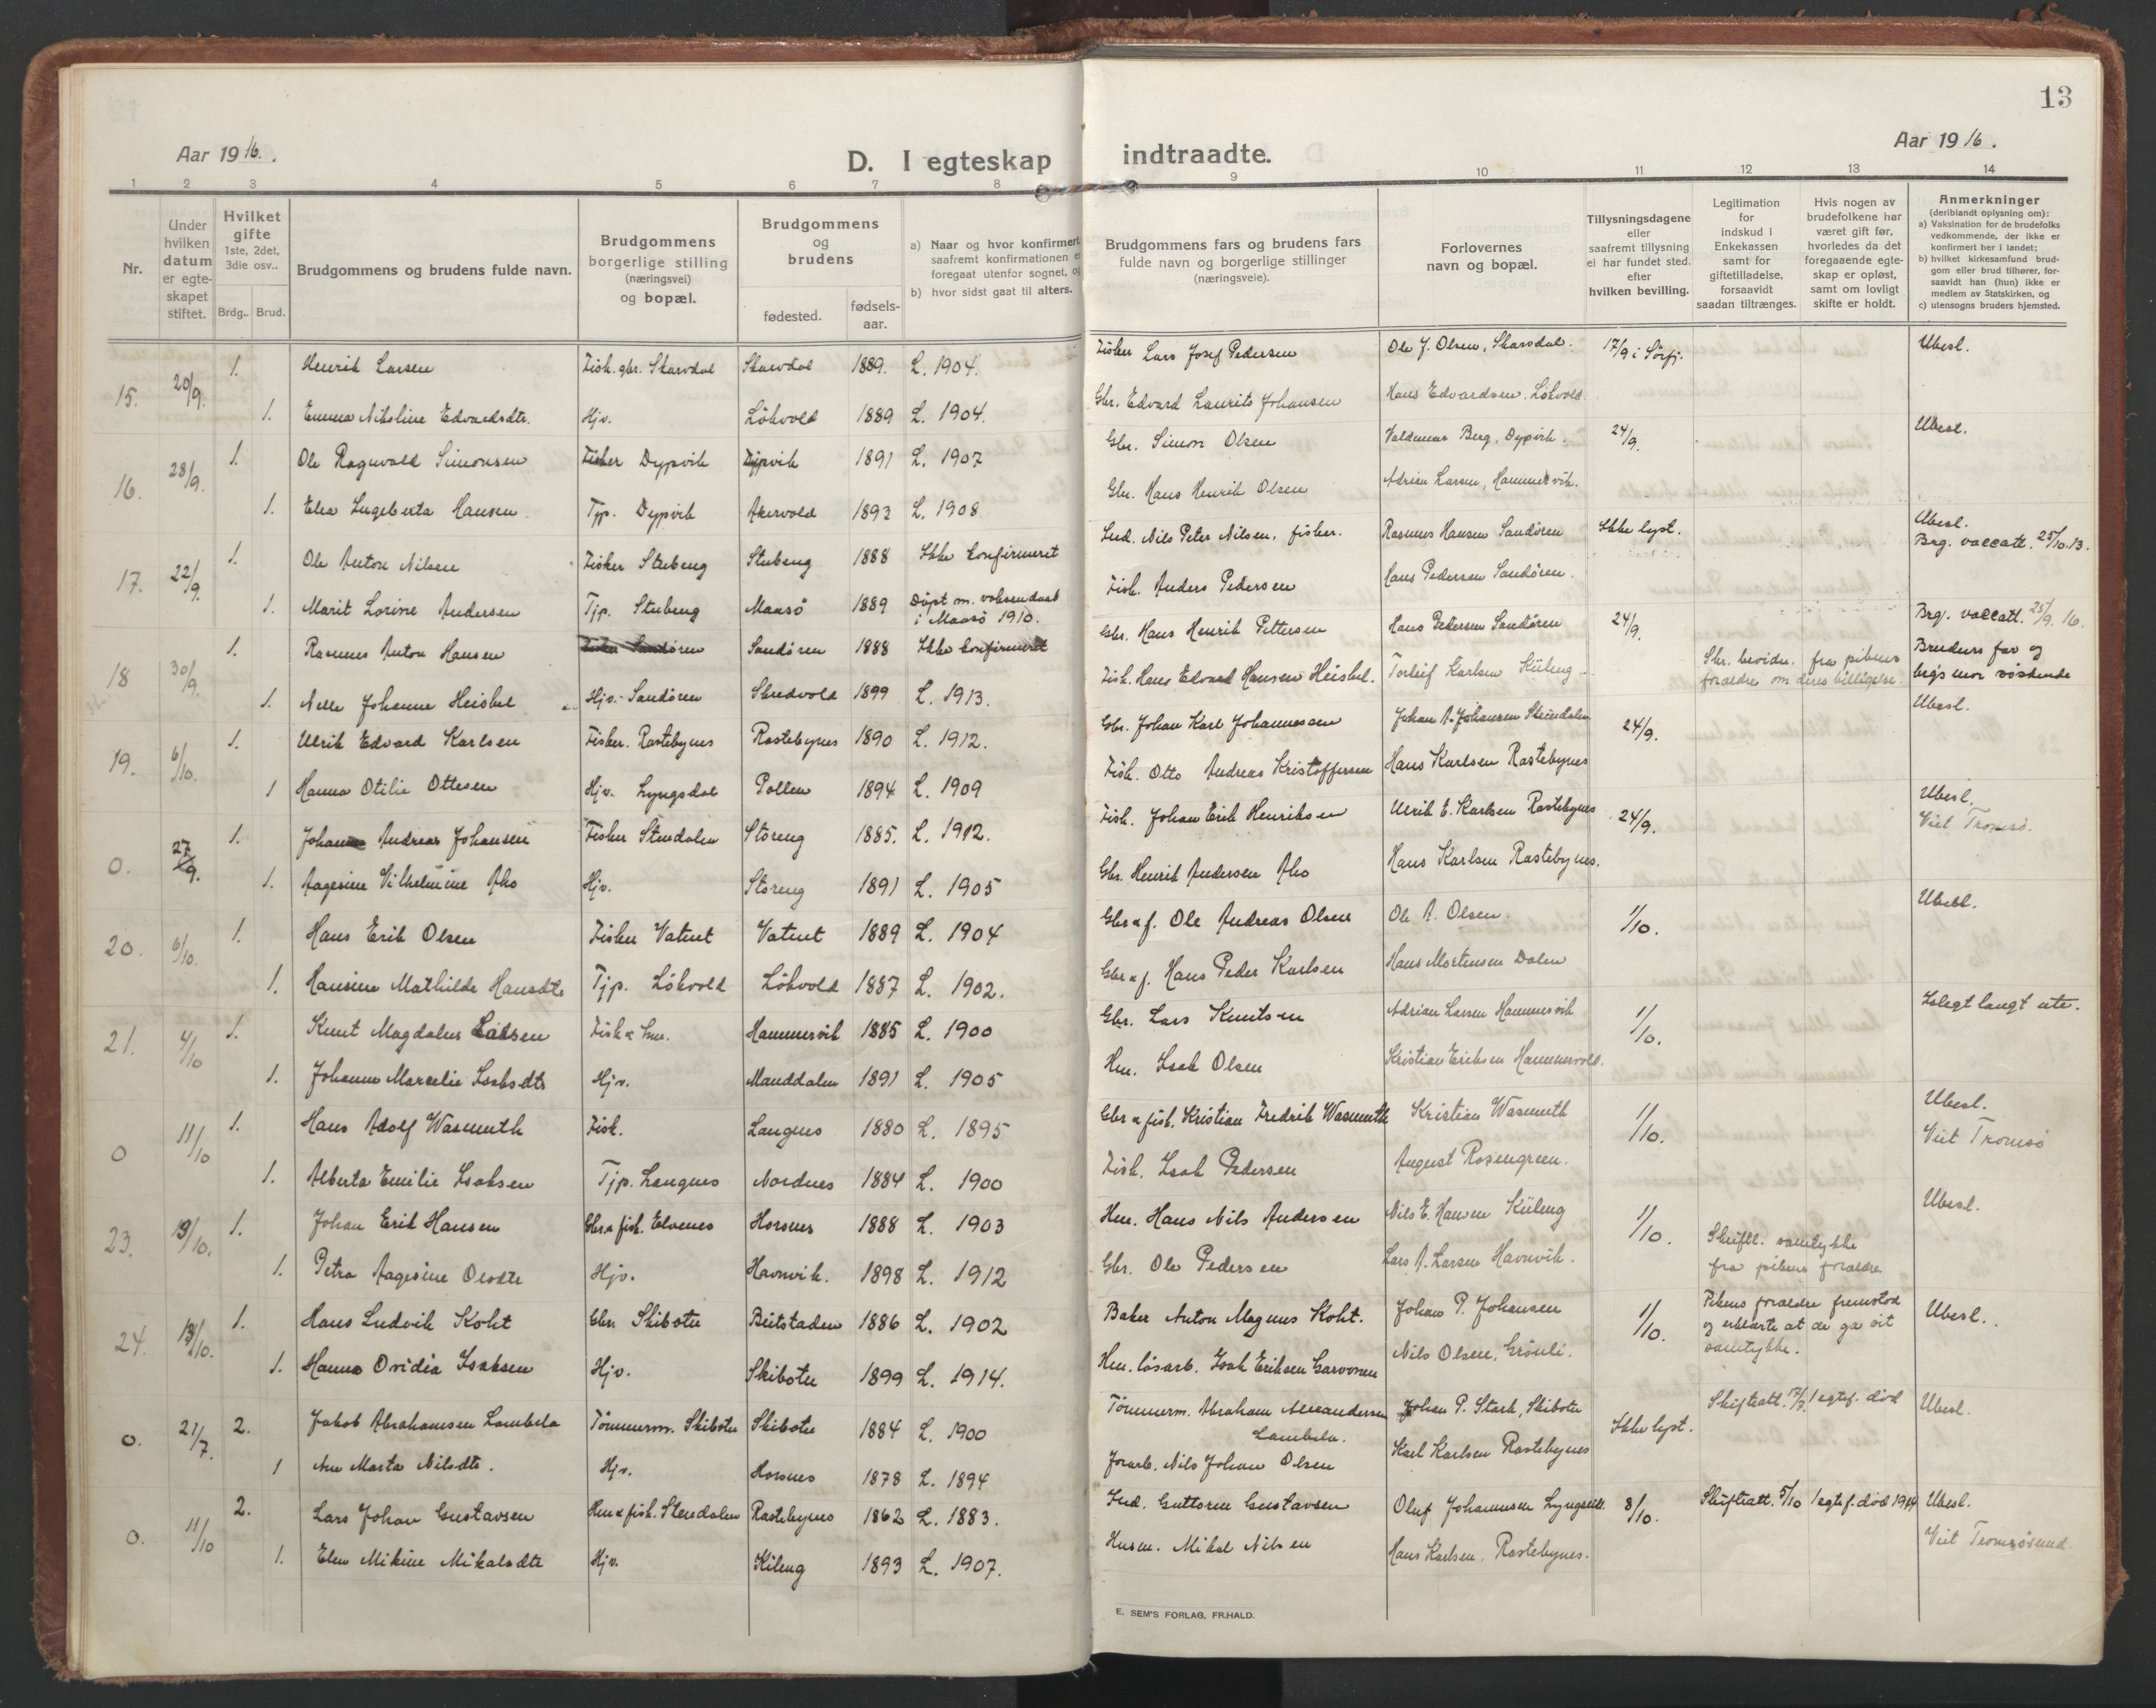 13
Aar 1916.
D. I egteskap
indtraadte.
Aar 1916.
1 2 3 4 5 6 7 8 9 10 11 12 13 14
Nr.
Under hvilken datum er egteskapet stiftet.
Hvilket gifte 1ste, 2det, 3die osv..
Brdg.. Brud.
Brudgommens og brudens fulde navn.
Brudgommens borgerlige stilling (næringsvei) og bopæl.
Brudgommens og brudens
fødested.
fødsels-aar.
a) Naar og hvor konfirmert, saafremt konfirmationen er foregaat utenfor sognet, og
b) hvor sidst gaat til alters.
Brudgommens fars og brudens fars fulde navn og borgerlige stillinger (næringsveie).
Forlovernes navn og bopæl.
Tillysningsdagene eller saafremt tillysning ei har fundet sted, efter hvilken bevilling.
Legitimation for indskud i Enkekassen samt for giftetilladelse, forsaavidt saadan tiltrænges.
Hvis nogen av brudefolkene har været gift før, hvorledes da det foregaaende egteskap er opløst, samt om lovligt skifte er holdt.
Anmerkninger (deriblandt oplysning om):
a) Vaksination for de brudefolks vedkommende, der ikke er konfirmert her i landet;
b) hvilket kirkesamfund brudgom eller brud tilhører, forsaavidt han (hun) ikke er medlem av Statskirken, og
c) utensogns bruders hjemsted.
15. 20/9. 1. Henrik Larsen Fisk. gbr. Skarvdal Skarvdal 1889. L. 1904. Fisker Lars Josef Pedersen Ole J. Olsen, Skarvdal. 17/9 i Sörfj. Ubesl.
1. Emma Nikoline Edvardsdtr. Hjv. Lökvold 1889 L. 1904. Gbr. Edvard Laurits Johansen Hans Edvardsen, Lökvold.
16. 28/9. 1. Ole Ragnvald Simonsen Fisker Dypvik Dypvik 1891 L. 1907 Gbr. Simon Olsen Valdemar Berg, Dypvik. 24/9. Ubesl.
1. Elea Ingeberta Hansen. Tjp. Dypvik Akervold 1893 L. 1908. Gbr. Hans Henrik Olsen Adrian Larsen, Hammervik.
17. 22/9. 1. Ole Anton Nilsen Fisker Stubeng Stubeng 1888 Ikke konfirmeret Ind. Nils Peter Nilsen, fisker. Rasmus Hansen Sandören Ikke lyst. Ubesl. Brg. vaccatt. 25/10.13.
1. Marit Lorine Andersen Tjp. Stubeng Maasö 1889 Döpt m. voksendaab i Maasö 1910. Fisk. Anders Pedersen Hans Pedersen Sandören.
18 30/9. 1. Rasmus Anton Hansen Sandören Sandören 1888 Ikke konfirmeret Gbr. Hans Henrik Pettersen Hans Pedersen Sandören 24/9. Brg. vaccatt. 25/9. 16.
1. Nelle Johanne Heiskel Hjv. Sandören Skredvold 1899 L. 1913. Fisk. Hans Edvard Hansen Heiskel. Torleif Karlsen Kileng Skr. bevidn. fra pikens forældre om deres billigelse Brudens far og brg's mor söskende
19. 6/10. 1. Ulrik Edvard Karlsen Fisker. Rastebynes Rastebynes 1890 L. 1912. Gbr. Johan Karl Johannessen Johan A. Johansen Steindalen 24/9. Ubesl.
1 Hanna Otilie Ottesen Hjv. Lyngsdal Pollen 1894 L. 1909 Fisk. Otto Andreas Kristoffersen Hans Karlsen Rastebynes
0. 27/9. 1. Johan Andreas Johansen Fisker Stendalen Storeng 1885. L. 1912. Fisk. Johan Erik Henriksen Ulrik E. Karlsen Rastebynes 24/9. Ubesl. Viet Tromsö.
1. Aagesine Vilhelmine Aho Hjv. Storeng 1891 L. 1905 Gbr. Henrik Andersen Aho Hans Karlsen Rastebynes.
20. 6/10. 1. Hans Erik Olsen Fisker Vatnet Vatnet 1889 L. 1904 Gbr & f. Ole Andreas Olsen Ole A. Olsen. 1/10. Ubesl.
1. Hansine Mathilde Hansdtr Tjp. Lökvold Lökvold 1887 L. 1902. Gbr & f. Hans Peder Karlsen Hans Mortensen Dalen
21. 4/10 1. Knut Magdalus Larsen Fisk & hm. Hammervik 1885 L. 1900 Gbr. Lars Knutsen Adrian Larsen Hammervik 1/10. Islegt langt ute.
1. Johanne Marcelie Isaksdtr Hjv. Manddalen 1891 L. 1905 Hm. Isak Olsen Kristian Eriksen Hammervold.
0 11/10 1. Hans Adolf Wasmuth Fisk. Langnes 1880 L. 1895 Gbr & fisk. Kristian Fredrik Wasmuth Kristian Wasmuth 1/10. Ubesl. Viet Tromsö
1. Alberta Emilie Isaksen Tjp. Langnes Nordnes 1884 L. 1900 Fisk. Isak Pedersen August Rosengreen.
23. 13/10. 1. Johan Erik Hansen Gbr. & fisk. Elvenes Horsnes 1888 L. 1903 Hm. Hans Nils Andersen Nils E. Hansen Kileng 1/10. Skriftl. samtykke fra pikens forældre Ubesl.
1. Petra Aagesine Olsdtr Hjv. Havnvik. 1898 L. 1912 Gbr. Ole Pedersen Lars A. Larsen Havnvik.
24. 13/10. 1. Hans Ludvik Koht Gbr. Skibotn Beitstaden 1886 L. 1902 Baker Anton Magnus Koht. Johan P. Johansen 1/10. Pikens forældre fremstod og erklærte at de ga sit samtykke. Ubesl.
1. Hanna Ovidia Isaksen Hjv. Skibotn 1899 L. 1914. Hm. lösarb. Isak Eriksen Garvonen Nils Olsen, Grönli.
0. 21/7. 2. Jakob Abrahamsen Lambela Tömmerm. Skibotn Skibotn 1884 L. 1900 Tömmerm. Abraham Alexandersen Lambela. Johan P. Stark, Skibotn Ikke lyst. Skifteatt. 17/7. 1 egtef. död Ubesl.
1 Ane Marta Nilsdtr. Hjv. Horsnes 1878 L. 1894 Forarb. Nils Johan Olsen Karl Karlsen Rastebynes
0. 11/10 2. Lars Johan Gustavsen Hm & fisk. Stendalen Rastebynes 1862 L. 1883. Ind. Guttorm Gustavsen Oluf Johannesen Lyngseid. 8/10. Skifteatt. 5/10 1 egtef. död 1914 Ubesl. Viet Tromsösund.
1. Elen Mikine Mikalsdtr Hjv. Kileng 1893 L. 1907. Husm. Mikal Nilsen Hans Karlsen. Rastebynes.
E. SEM'S FORLAG, FR.HALD.